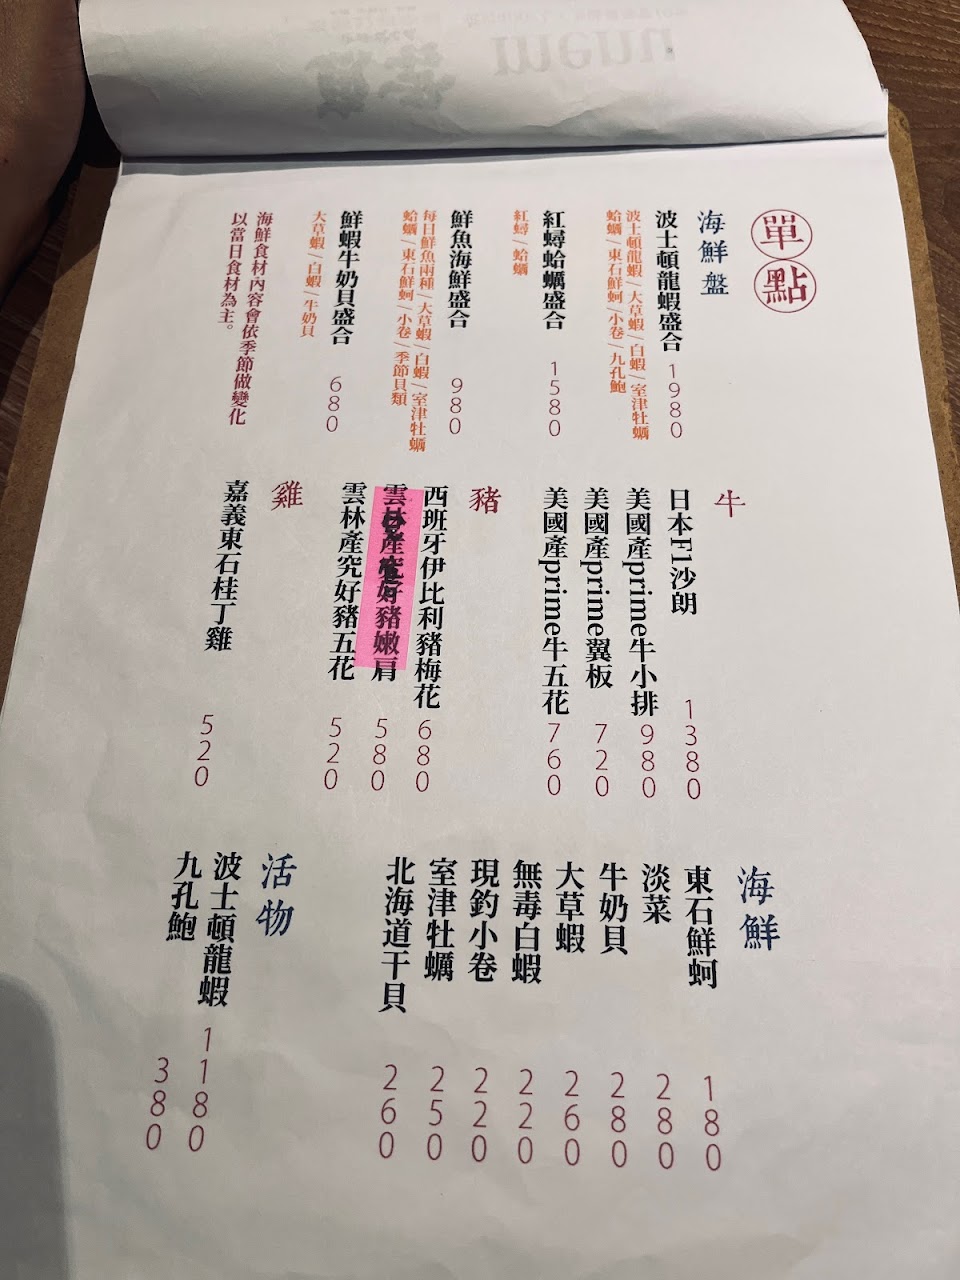 menu
單點
海鮮盤
波士頓龍蝦盛合 1980
波士頓龍蝦/大草蝦/白蝦/室津牡蠣
蛤蠣/東石鮮蚵/小卷/九孔鮑
紅蟳蛤蠣盛合 1580
紅蟳/蛤蠣
鮮魚海鮮盛合 980
每日鮮魚兩種/大草蝦/白蝦/室津牡蠣
蛤蠣/東石鮮蚵/小卷/季節貝類
鮮蝦牛奶貝盛合 680
大草蝦/白蝦/牛奶貝
海鮮食材內容會依季節做變化
以當日食材為主。
牛
日本F1沙朗 1380
美國產prime牛小排 980
美國產prime翼板 720
美國產prime牛五花 760
豬
西班牙伊比利豬梅花 680
雲林產究好豬嫩肩 580
雲林產究好豬五花 520
雞
嘉義東石桂丁雞 520
海鮮
東石鮮蚵 180
淡菜 280
牛奶貝 280
大草蝦 260
無毒白蝦 220
現釣小卷 220
室津牡蠣 250
北海道干貝 260
活物
波士頓龍蝦 1180
九孔鮑 380